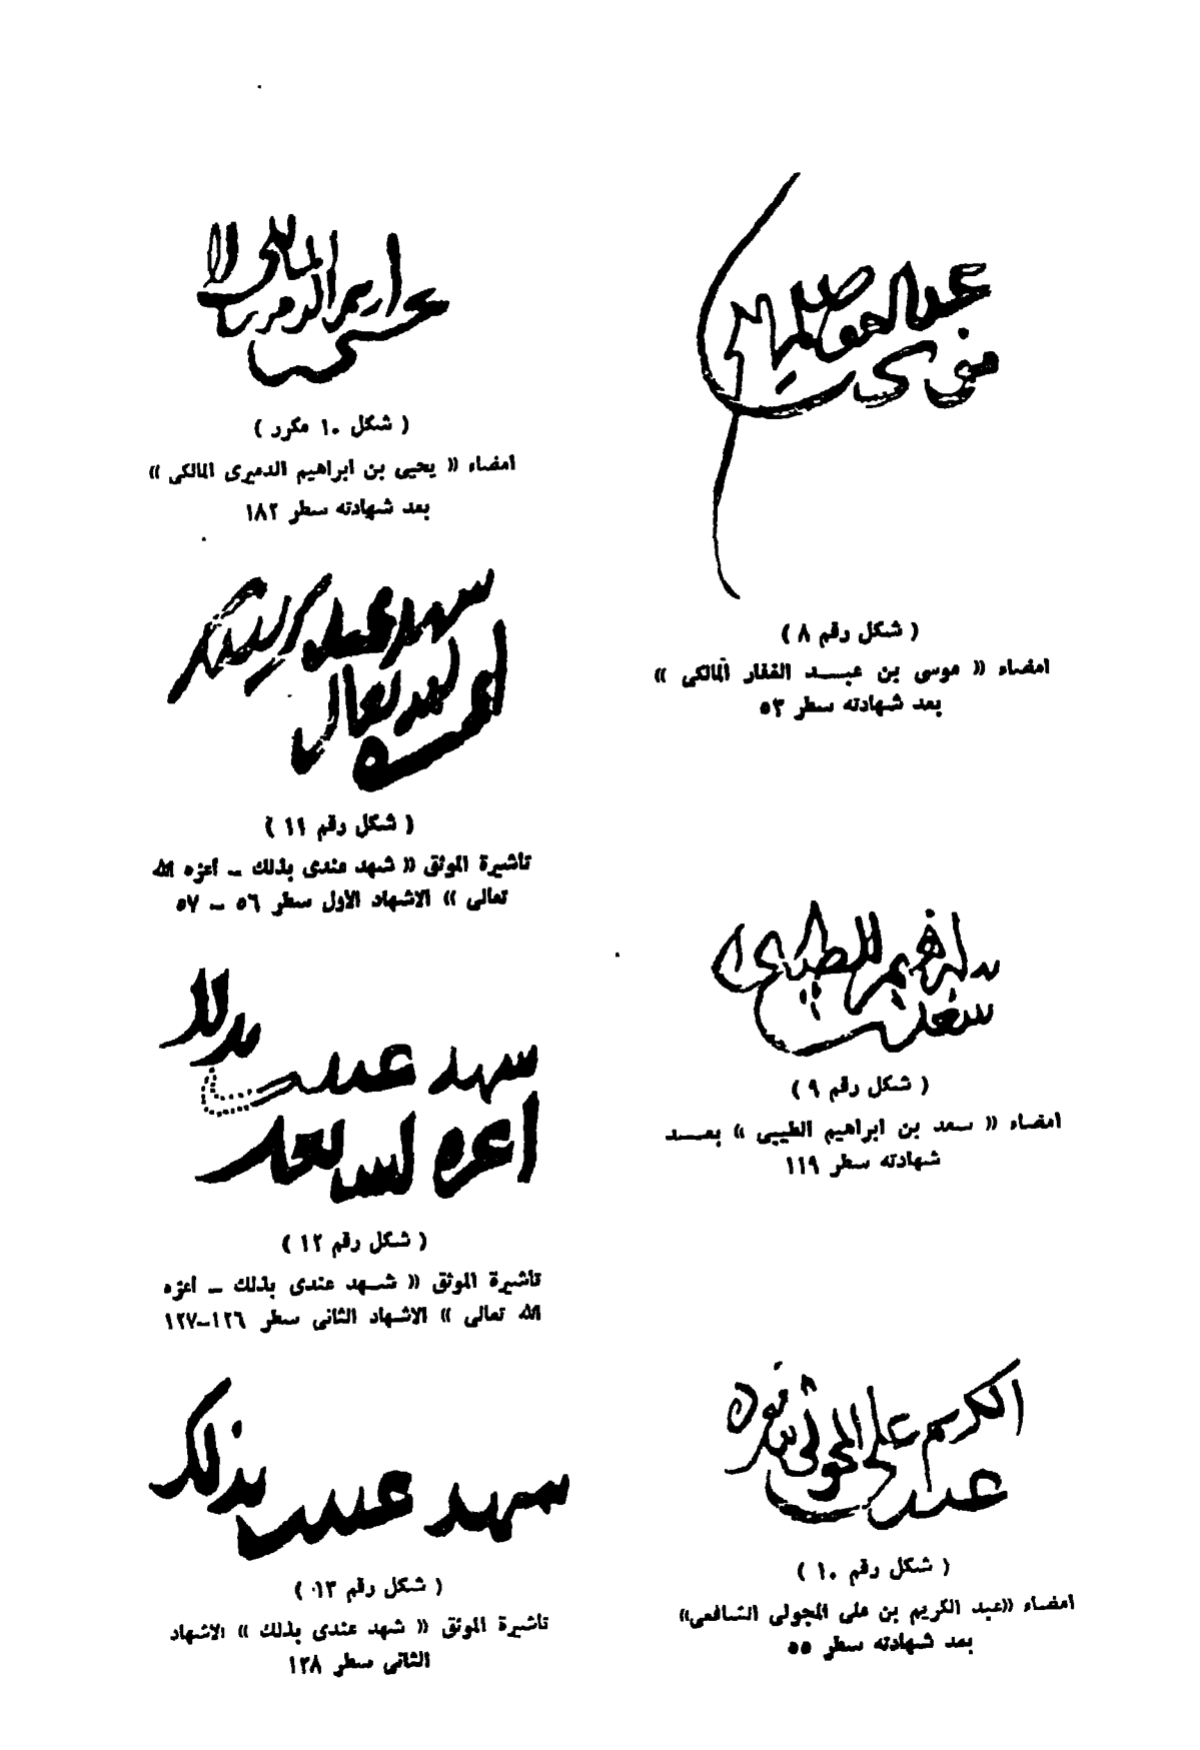 ( شكل رقم ٨ )
امضاء « موسى بن عبــد الغفار المالكى »
بعد شهادته سطر ٥٣
( شكل رقم ٩ )
امضاء « سعد بن ابراهيم الطيبى » بعــد
شهادته سطر ١١٩
( شكل رقم ١٠ )
امضاء «عبد الكريم بن على المجولى الشافعى»
بعد شهادته سطر ٥٥
( شكل ١٠ مكرر )
امضاء « يحيى بن ابراهيم الدميرى المالكى »
بعد شهادته سطر ١٨٢
شهد عندى بذلك
اعزه الله تعالى
( شكل رقم ١١ )
تاشيرة الموثق « شهد عندى بذلك ــ أعزه الله
تعالى » الاشهاد الأول سطر ٥٦ ــ ٥٧
شهد عندى بذلك
اعزه الله تعالى
( شكل رقم ١٢ )
تأشيرة الموثق « شــهد عندى بذلك ــ أعزه
الله تعالى » الاشهاد الثانى سطر ١٢٦–١٢٧
شهد عندى بذلك
( شكل رقم ١٣ )
تاشيرة الموثق « شهد عندى بذلك » الاشهاد
الثانى سطر ١٣٨